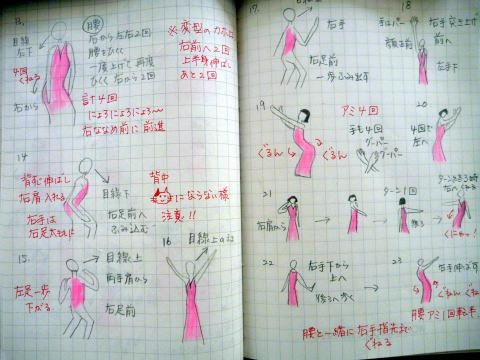 13.
目線
右下
4回
くねる
右から
腰
右から左右2回
腰をひく
一度上げて再度
ひく 右から2回
計4回
にょろにょろにょろ〜
右ななめ前に前進
※変型のカホに
右前へ2回
上半身伸ばし
あと2回
14
背中伸ばし
右肩入れる
右手は
右足太ももに
目線下
右足前へ
ふみ込む
背中
にならない様
注意!!
15.
左足一歩
下がる
目線上
両手肩から
右足前
16
目線上
17.
右手
右足前
一歩ふみ出す
18
手はパー
顔正面
右手突き上げ
前へ
左手下
19
アミ4回
手も4回
グーパー
グーパー
ぐるん
ぐるん
20
4回で
左へ
21
右肩から
ターン1回
後3
右へくねる
くにゃっ!
22
右手下から
上へ
後3へ歩く
23
右手伸ばす
ぐねん ぐねん
腰アミ1回転半
腰と一緒に右手指先まで
くねる